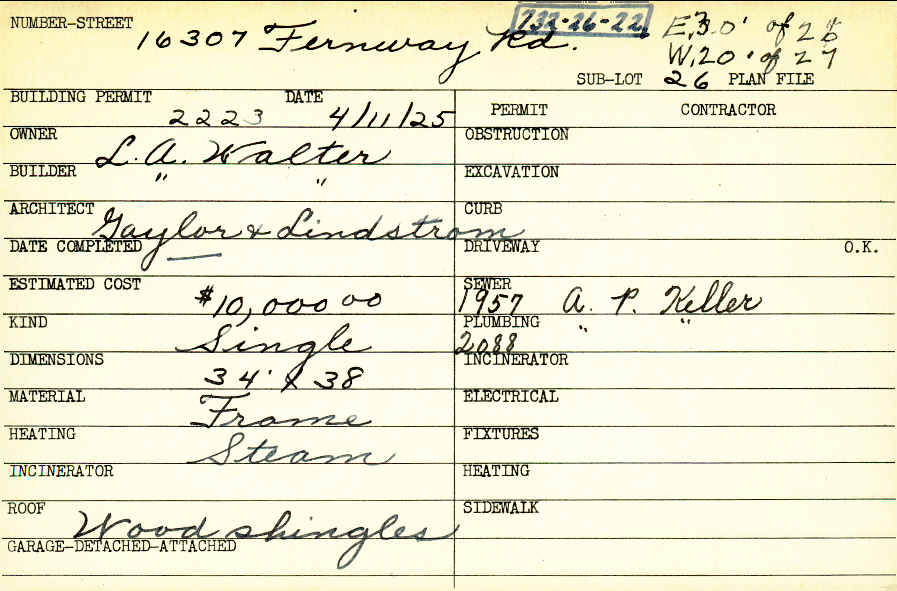 NUMBER-STREET 16307 Fernway Rd. 732-26-22 E, 30' of 26
W, 20' of 27
SUB-LOT 26 PLAN FILE
BUILDING PERMIT 2223 DATE 4/11/25
OWNER L. A. Walter
BUILDER " "
ARCHITECT Gaylor & Lindstrom
DATE COMPLETED —
ESTIMATED COST $10,000 00
KIND Single
DIMENSIONS 34' x 38
MATERIAL Frame
HEATING Steam
INCINERATOR
ROOF Wood shingles
GARAGE-DETACHED-ATTACHED
PERMIT CONTRACTOR
OBSTRUCTION
EXCAVATION
CURB
DRIVEWAY O.K.
SEWER 1957 A. P. Keller
PLUMBING 2088 " "
INCINERATOR
ELECTRICAL
FIXTURES
HEATING
SIDEWALK